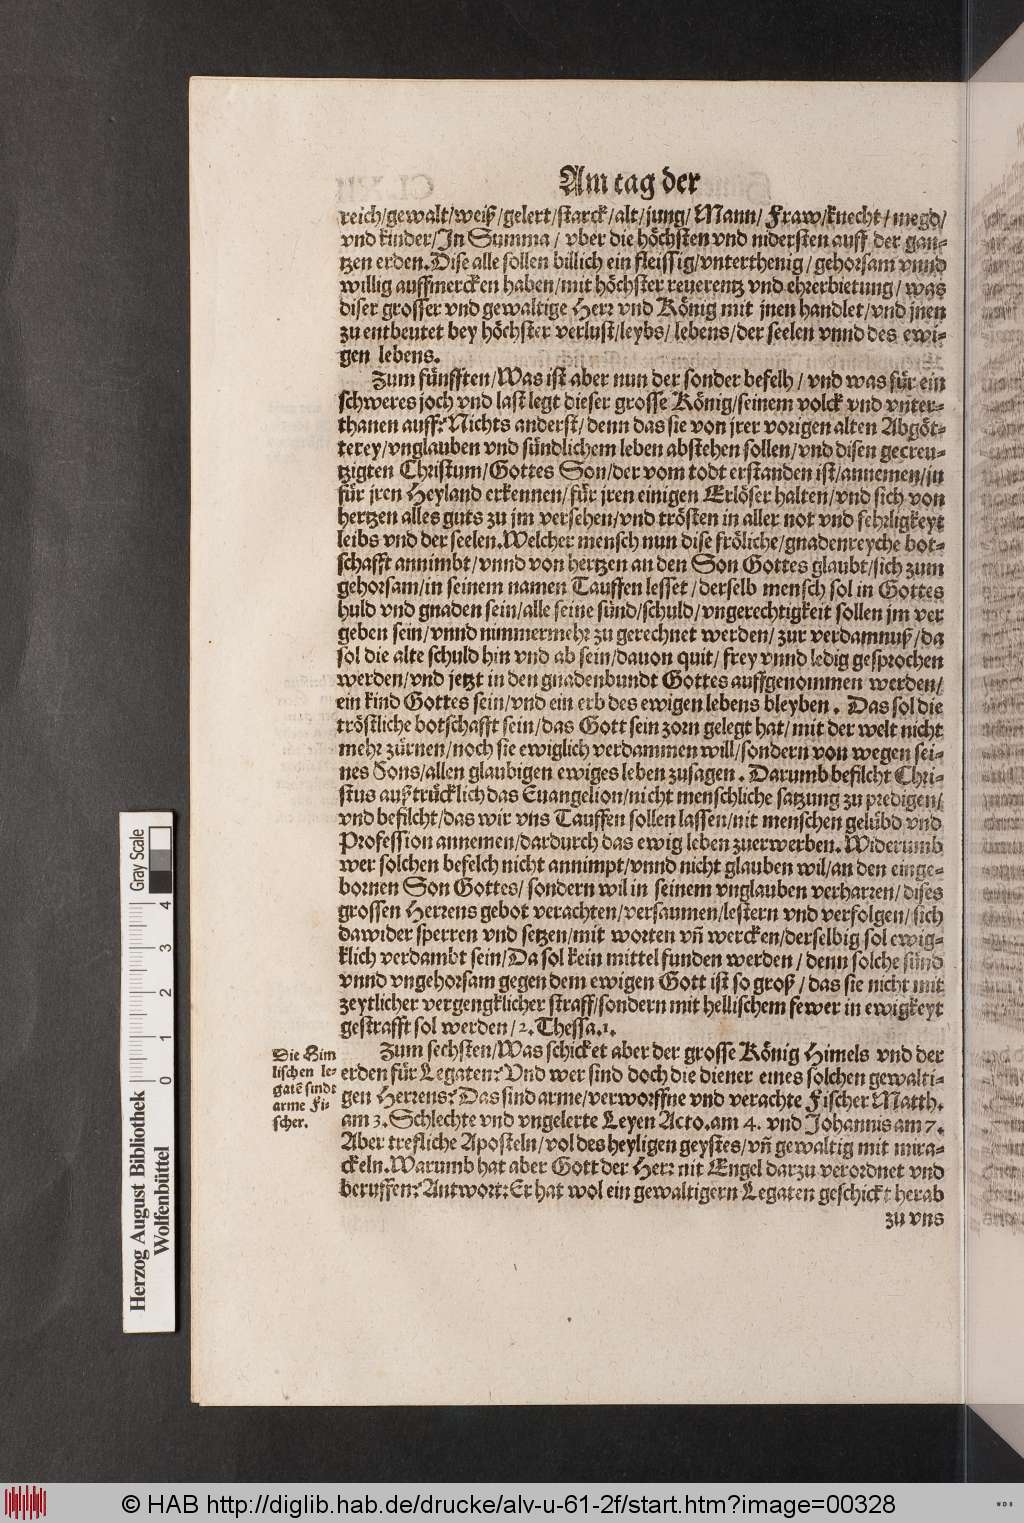 Am tag der
reich/gewalt/weiß/gelert/starck/alt/jung/ Mann/ Fraw/knecht/ megd/
vnd kinder/In Summa / vber die höchsten vnd nidersten auff der gan-
tzen erden. Dise alle sollen billich ein fleissig/vnterthenig/ gehorsam vnnd
willig auffmercken haben/mit höchster reuerentz vnd ehrerbietung/ was
diser grosser vnd gewaltige Herr vnd König mit jnen handlet/vnd jnen
zu entbeutet bey höchster verlust/leybs/ lebens/der seelen vnnd des ewi-
gen lebens.
Zum fünfften/Was ist aber nun der sonder befelh / vnd was für ein
schweres joch vnd last legt dieser grosse König/seinem volck vnd vnter-
thanen auff? Nichts anderst/denn das sie von jrer vorigen alten Abgöt-
terey/vnglauben vnd sündlichem leben abstehen sollen/vnd disen gecreu-
tzigten Christum/Gottes Son/der vom todt erstanden ist/annemen/jn
für jren Heyland erkennen/für jren einigen Erlöser halten/vnd sich von
hertzen alles guts zu jm versehen/vnd trösten in aller not vnd fehrligkeyt
leibs vnd der seelen. Welcher mensch nun dise fröliche/gnadenreyche bot-
schafft annimbt/vnnd von hertzen an den Son Gottes glaubt/sich zum
gehorsam/in seinem namen Tauffen lesset/derselb mensch sol in Gottes
huld vnd gnaden sein/alle seine sünd/schuld/vngerechtigkeit sollen jm ver
geben sein/vnnd nimmermehr zu gerechnet werden/ zur verdamnuß/da
sol die alte schuld hin vnd ab sein/dauon quit/ frey vnnd ledig gesprochen
werden/vnd jetzt in den gnadenbundt Gottes auffgenommen werden/
ein kind Gottes sein/vnd ein erb des ewigen lebens bleyben. Das sol die
tröstliche botschafft sein/das Gott sein zorn gelegt hat/mit der welt nicht
mehr zürnen/noch sie ewiglich verdammen will/sondern von wegen sei-
nes Sons/allen glaubigen ewiges leben zusagen. Darumb befilcht Chri-
stus außtrücklich das Euangelion/nicht menschliche satzung zu predigen/
vnd befilcht/das wir vns Tauffen sollen lassen/nit menschen gelübd vnd
Profession annemen/dardurch das ewig leben zuerwerben. Widerumb
wer solchen befelch nicht annimpt/vnnd nicht glauben wil/an den einge-
bornen Son Gottes/ sondern wil in seinem vnglauben verharren/ dises
grossen Herrens gebot verachten/versaumen/lestern vnd verfolgen/sich
dawider sperren vnd setzen/mit worten vñ wercken/derselbig sol ewig-
klich verdambt sein/Da sol kein mittel funden werden / denn solche sünd
vnnd vngehorsam gegen dem ewigen Gott ist so groß / das sie nicht mit
zeytlicher vergengklicher straff/sondern mit hellischem fewer in ewigkeyt
gestrafft sol werden/2. Thessa. 1.
Die Him
lischen le-
gatẽ sindt
arme Fi-
scher.
Zum sechsten/Was schicket aber der grosse König Himels vnd der
erden für Legaten? Vnd wer sind doch die diener eines solchen gewalti-
gen Herrens? Das sind arme/verworffne vnd verachte Fischer Matth.
am 3. Schlechte vnd vngelerte Leyen Acto. am 4. vnd Johannis am 7.
Aber trefliche Aposteln/vol des heyligen geystes/vñ gewaltig mit mira-
ckeln. Warumb hat aber Gott der Herr nit Engel darzu verordnet vnd
beruffen? Antwort: Er hat wol ein gewaltigern Legaten geschickt herab
zu vns
Gray Scale
0 1 2 3 4
Herzog August Bibliothek
Wolfenbüttel
© HAB http://diglib.hab.de/drucke/alv-u-61-2f/start.htm?image=00328